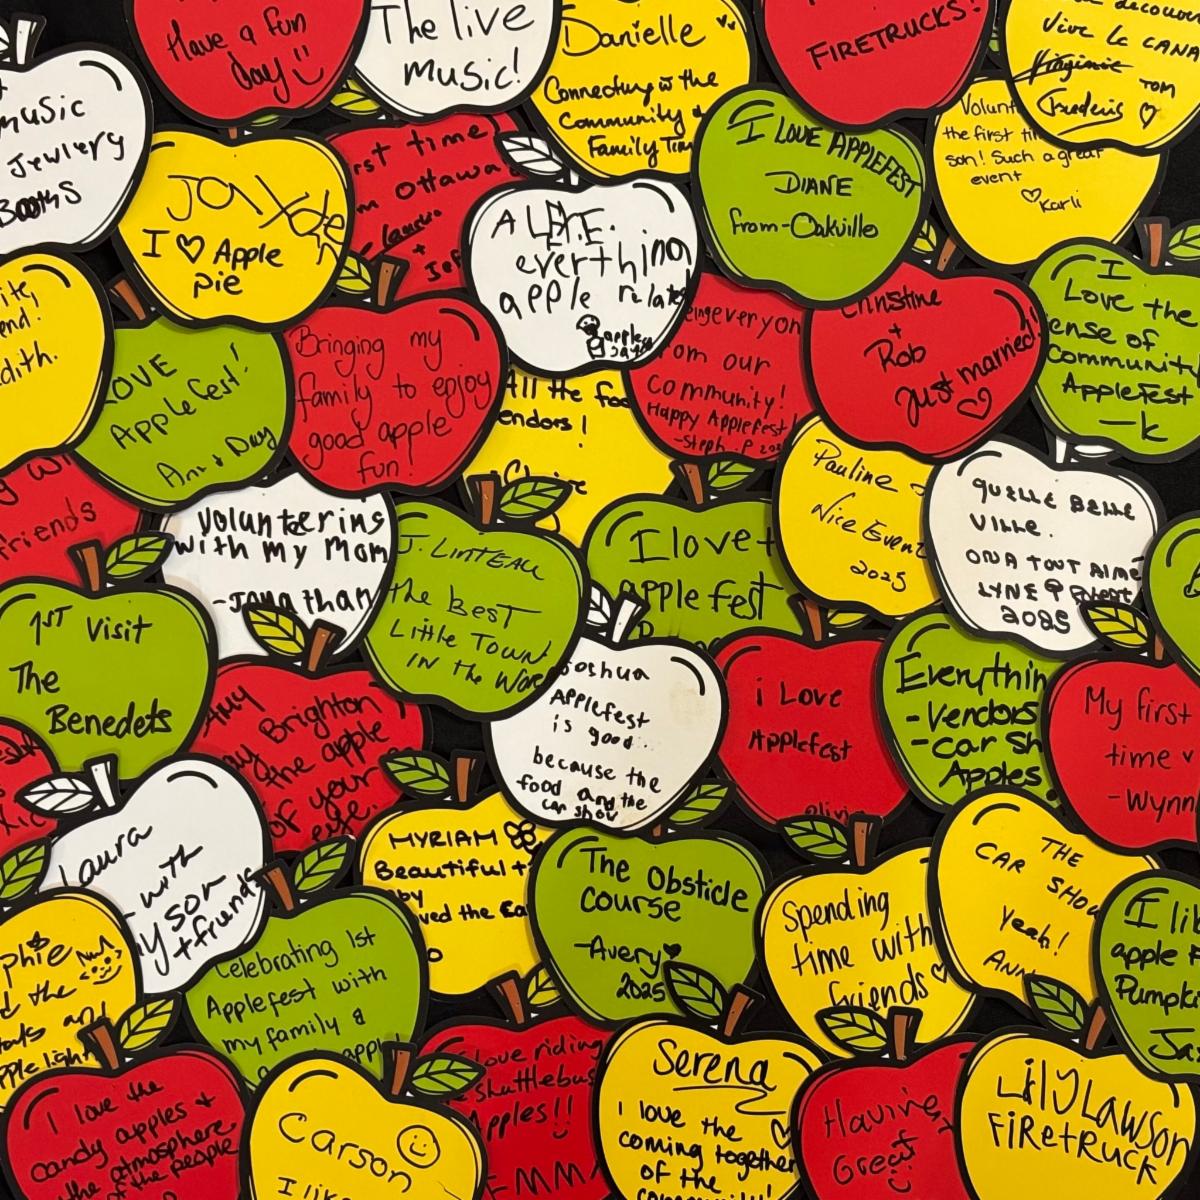 Have a fun
day
The live
music!
Danielle
Connecting w the
Community &
Family Tim
FIRETRUCKS!
Vive le CANA
Virginie
TOM
Frederis
music
Jewlery
Books
JOY
I ♡ Apple
pie
rst time
m Ottawa
A
everthing
apple relate
I LOVE APPLEFEST
DIANE
from-Oakville
Volunt
the first ti
son! Such a great
event
♡Karli
I
Love the
ense of
Community
Applefest
-K
ite,
end!
dith.
LOVE
Applefest!
Ann & Doug
Bringing my
family to enjoy
good apple
fun!
All the foo
endors!
eingeveryon
om our
Community!
Happy Applefest!
-Steph P 202
Christine
+
Rob
Just married!
♡
Pauline
Nice Event
2025
QUELLE BELLE
VILLE.
ON A TOUT AIMÉ
LYNE
2025
friends
Volunteering
with my Mom
-Jonathan
J. LINTEAU
the BEST
Little TOWN
IN the Wor
I love
apple fest
1ST Visit
The
Benedets
AMY
Brighton
the apple
of your
eye.
Joshua
Applefest
is good
because the
food and the
car show
i Love
Applefest
Olivia
Everythin
-Vendors
-Car Sh
Apples
My first
time
-Wynn
Laura
with
my son
+ friends
MYRIAM
Beautiful
by
ved the
The Obstacle
course
-Avery♥
2025
Spending
time with
friends♡
THE
CAR SHOW
Yeah!
ANN
I li
apple F
Pumpki
Ja
phie
the
and
pple light
Celebrating 1st
Applefest with
my family &
I love the
candy apples +
the atmosphere
of the people
Carson
I like
love riding
shuttlebus
Apples!!
EMMA
Serena
I love the ♡
coming together
of the
community!
Having
Great
Lily LAWSON
FiRetRUCK